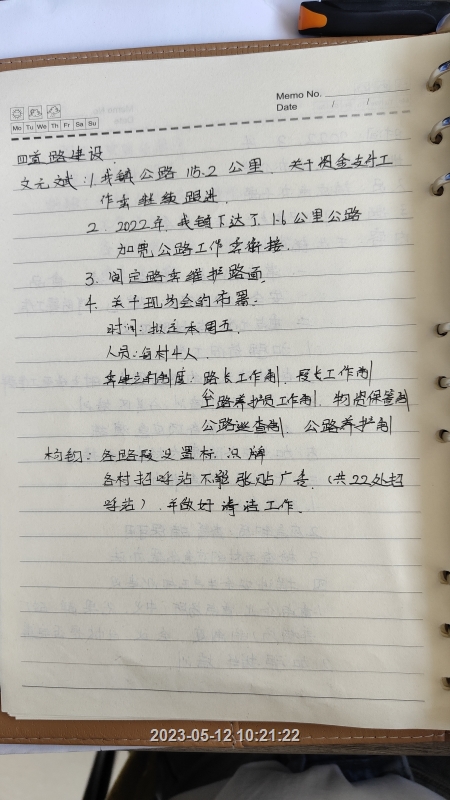 Memo No.
Date / /
Mo Tu We Th Fr Sa Su
四首路建设.
文元斌:1.我镇公路115.2公里,关于拥金支付工
作要继续跟进.
2. 2022年,我镇下达了1.6公里公路
加宽公路工作要衔接.
3. 固定路要维护路面.
4. 关于现场会的布署:
时间:拟定本周五.
人员:每村4人.
要建立制度:路长工作制、段长工作制
公路养护员工作制、物资保管制
公路巡查制、公路养护制
:各路段设置标识牌
各村招呼站不能张贴广告.(共22处招
呼站).并做好清洁工作.
2023-05-12 10:21:22